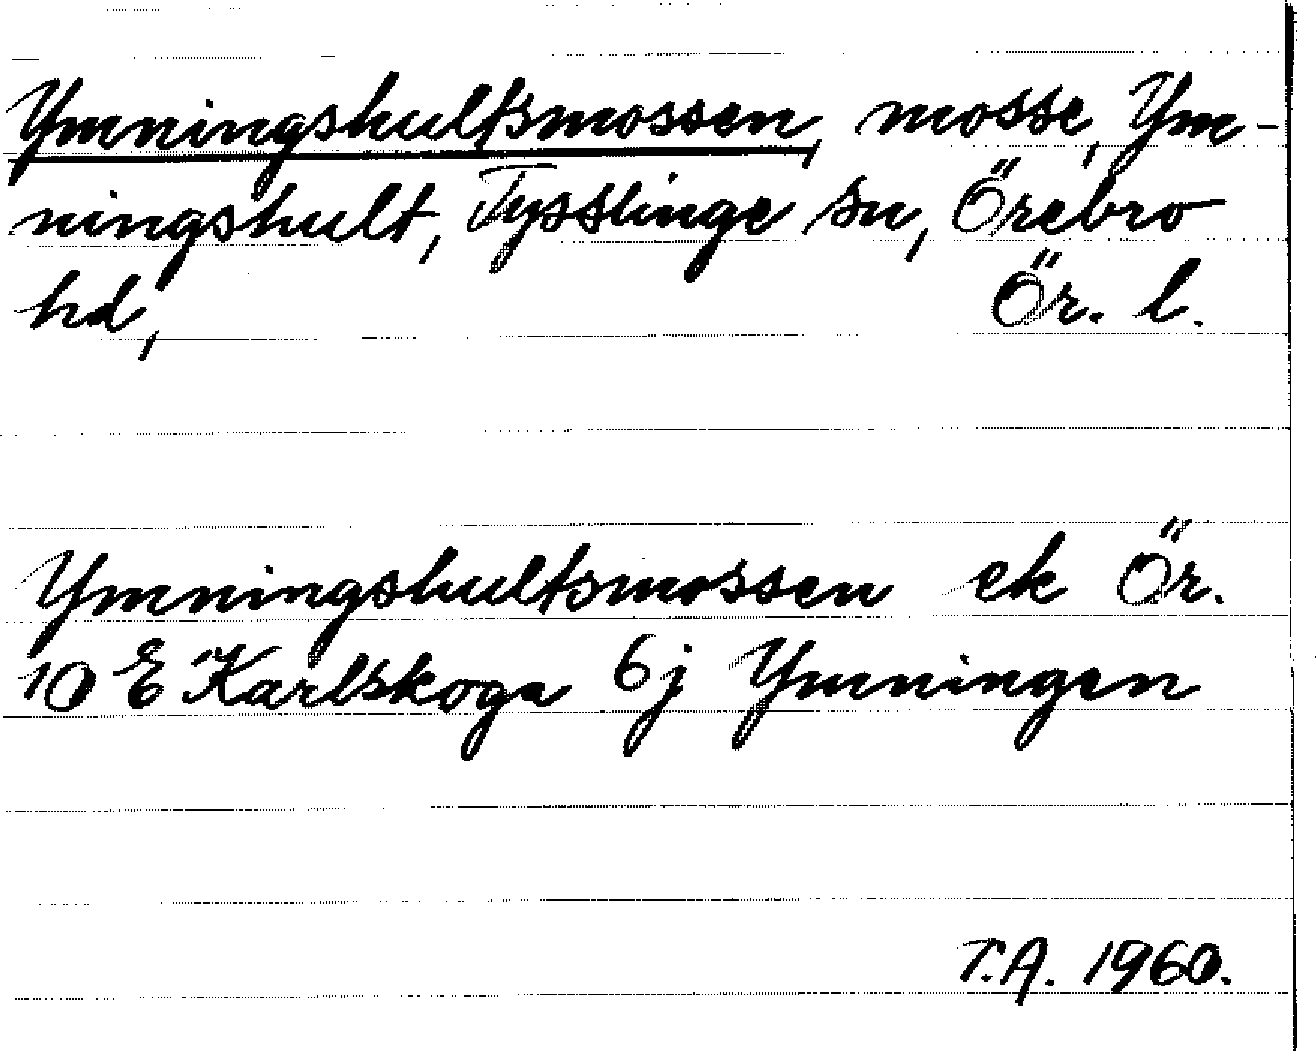 Ymningshultsmossen, mosse, Ym-
ningshult, Tysslinge sn, Örebro
hd, Ör. l.
Ymningshultsmossen ek Ör.
10 E Karlskoga 6j Ymningen
T.A. 1960.